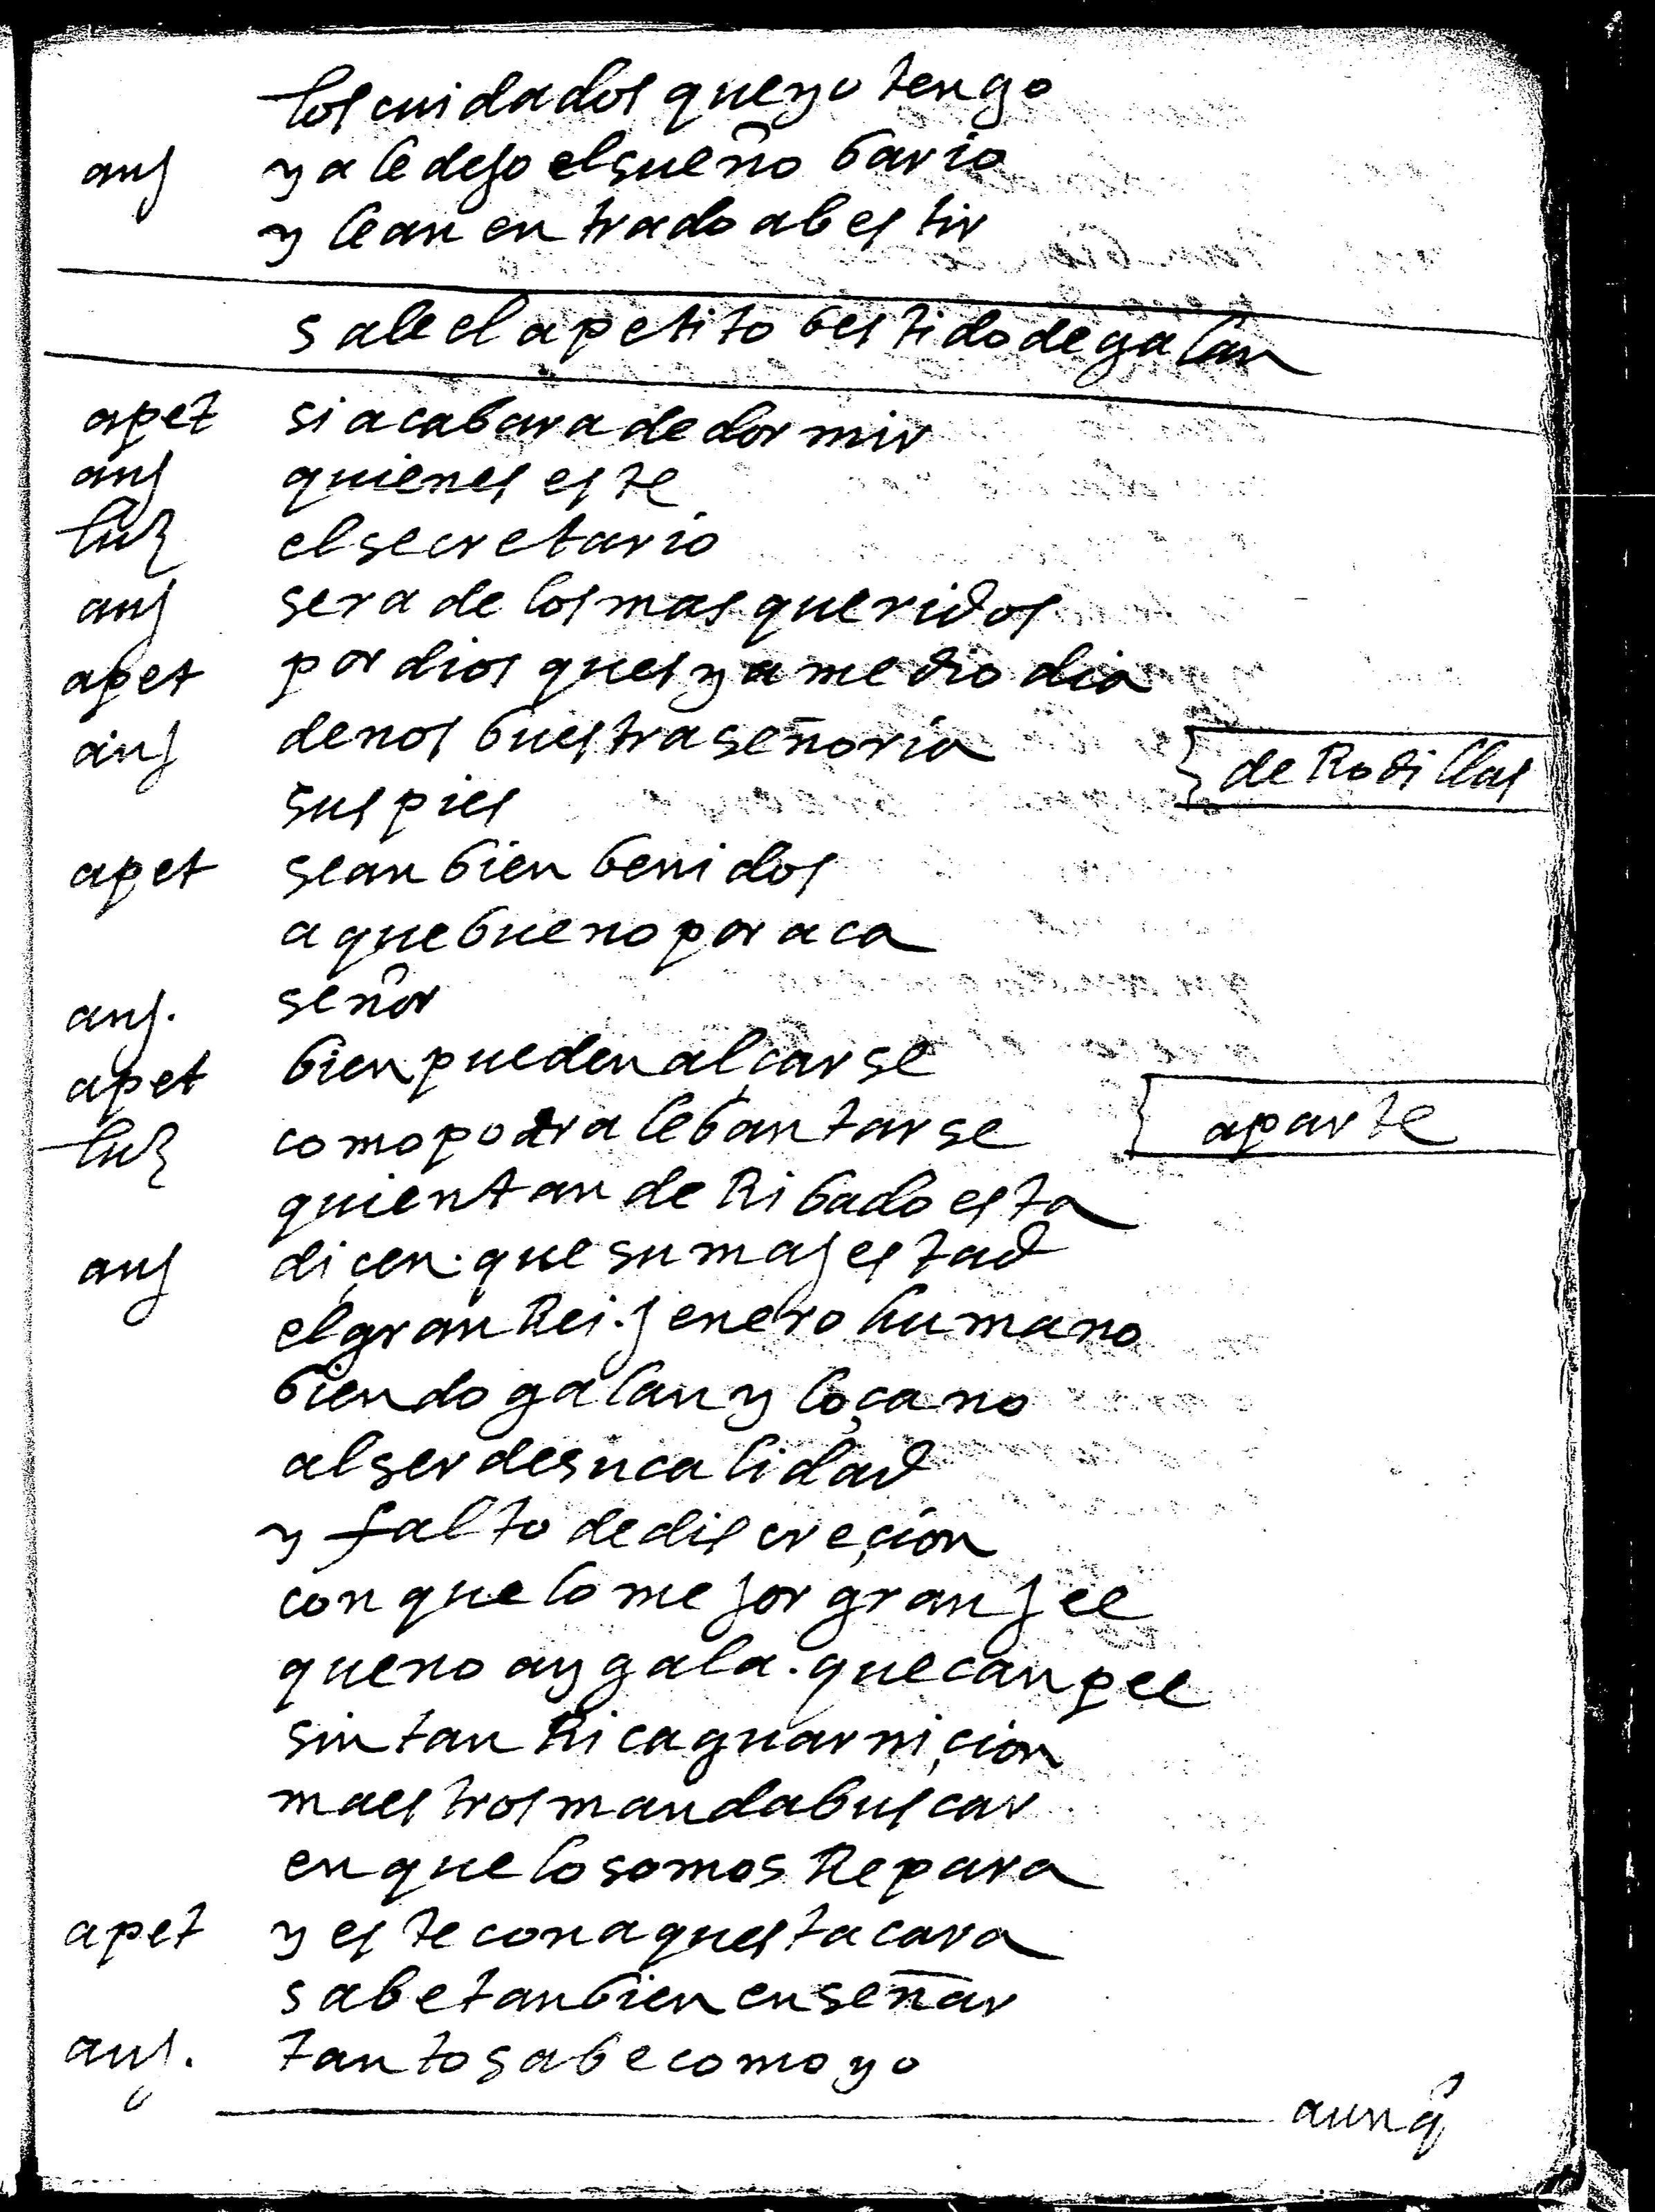 los cuidados que yo tengo
anj ya le dejo el sueño bario
y lean entrado a bestir
sale el apetito bestido de galan
apet si acabara de dormir
anj quien es este
luz el secretario
anj sera de los mas queridos
apet por dios ques ya medio dia
anj denos buestra señoria { de Rodillas
sus pies
apet sean bien benidos
a que bueno por aca
anj. señor
apet bien pueden alçarse
luz como podra lebantarse { aparte
quien tan deRibado esta
anj diçen. que su majestad
el gran Rei. jenero humano
biendo galan y loçano
al ser de su calidad
y falto de discreçion
con que lo mejor granjee
que no ay gala. que canpee
sin tan Rica guarniçion
maestros manda buscar
en que lo somos Repara
apet y este con aquesta cara
sabe tanbien enseñar
anj. tanto sabe como yo
aunq̃